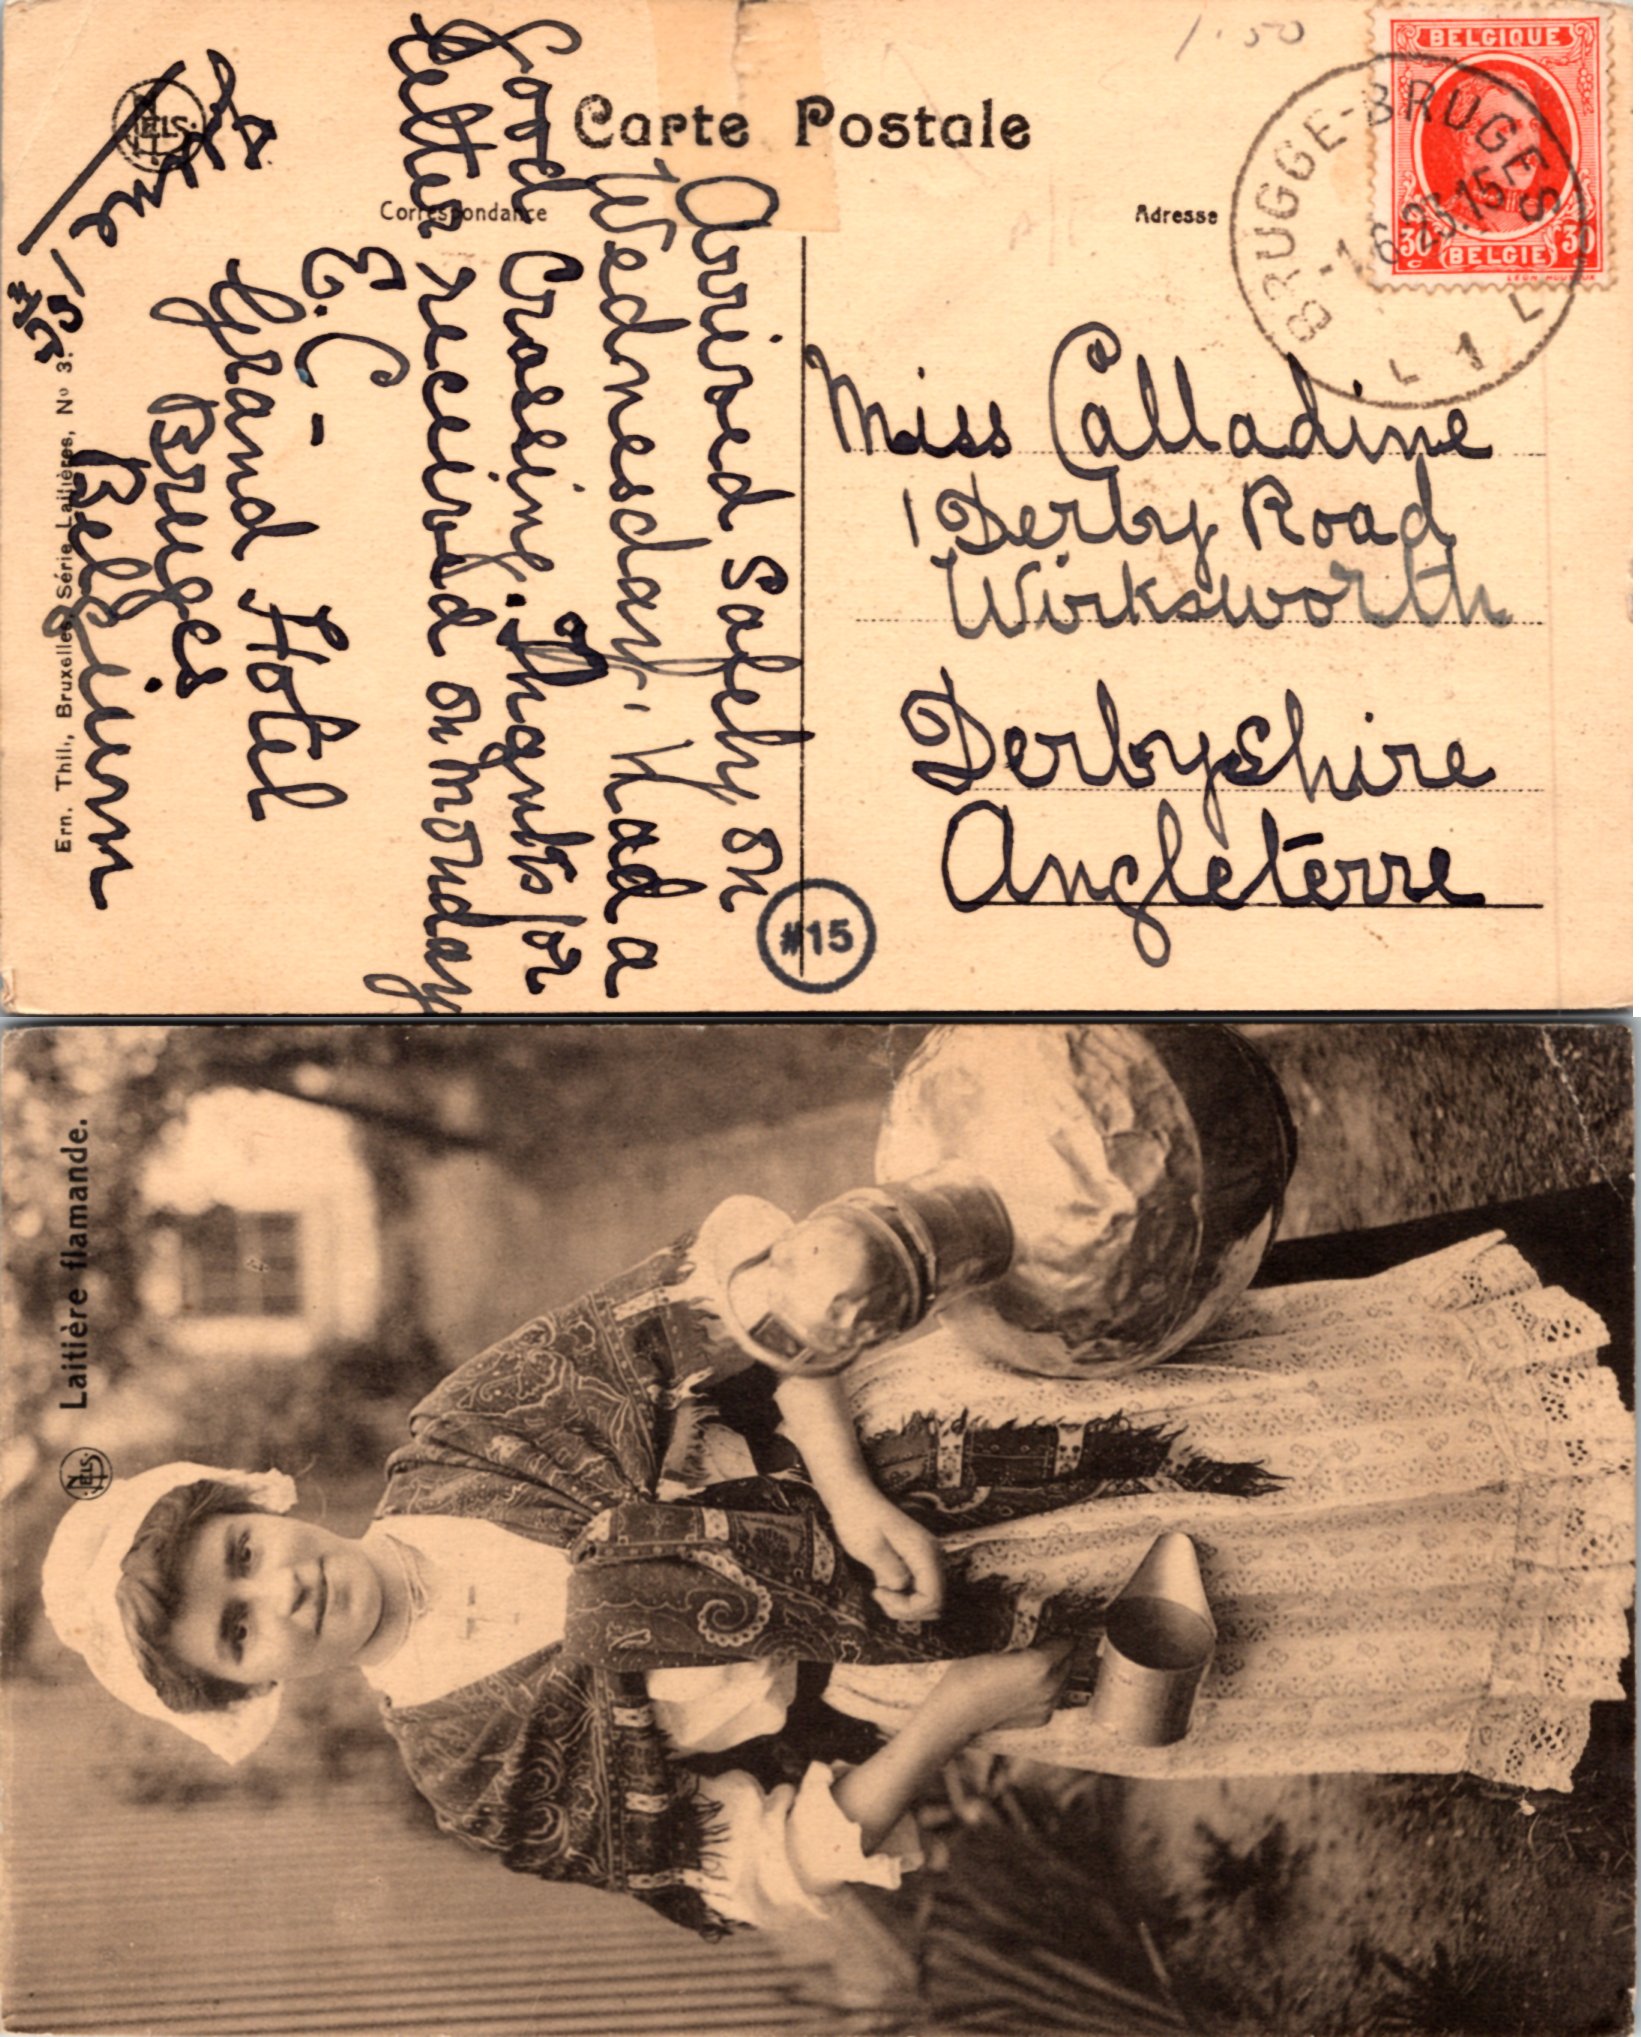 Carte Postale
Correspondance
Adresse
NELS
1.50
BELGIQUE
30 30
(BELGIE)
BRUGGE-BRUGES
L 1 L
Miss Calladine
1 Derby Road
Wirksworth
Derbyshire
Angleterre
#15
Arrived Safely on
Wednesday, Had a
Good Crossing. Thanks for
Letter received on Monday
E.C -
Grand Hotel
Bruges
Belgium
June
Ern. Thill, Bruxelles, Série Laitières, Nº 3.
NELS
Laitière flamande.